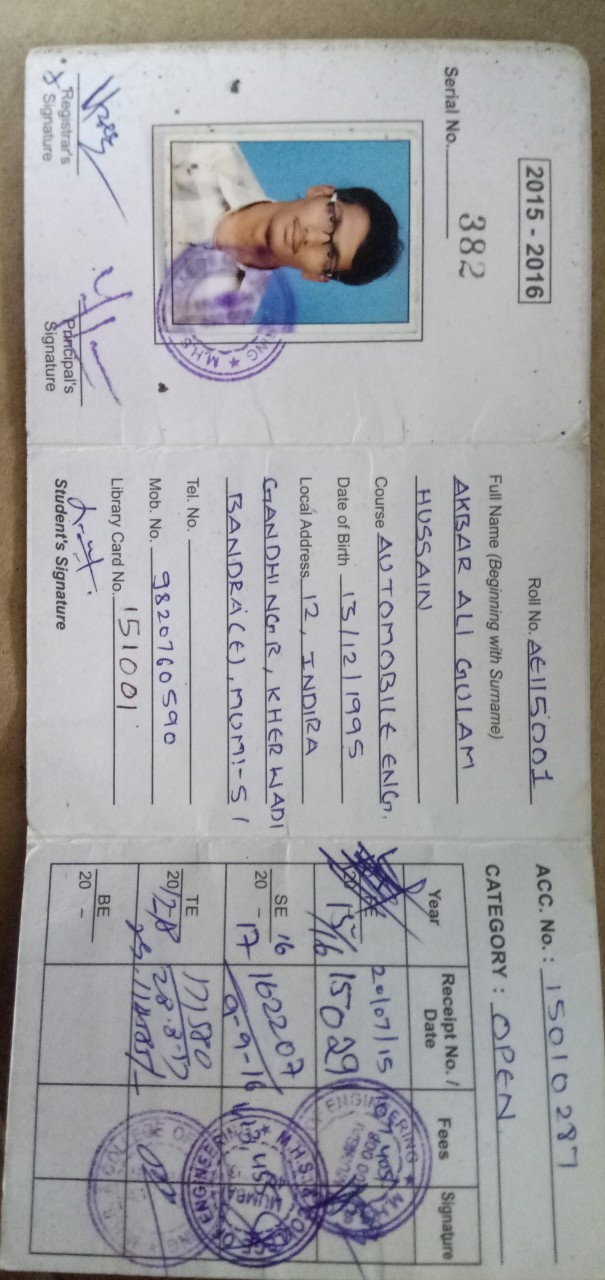 2015 - 2016
Serial No. 382
Registrar's
Signature
Principal's
Signature
Roll No. AE115001
Full Name (Beginning with Surname)
AKBAR ALI GULAM
HUSSAIN
Course AUTOMOBILE ENG.
Date of Birth 13/12/1995
Local Address 12, INDIRA
GANDHI NGR, KHERWADI
BANDRA(E), MUM:-51
Tel. No.
Mob. No. 9820760590
Library Card No. 151001
Student's Signature
ACC. No. : 15010287
CATEGORY : OPEN
Year Receipt No. / Date Fees Signature
20/07/15
15029
SE 16
20 - 17
162207
9-9-16
TE
20
171580
28.8.17
BE
20 -